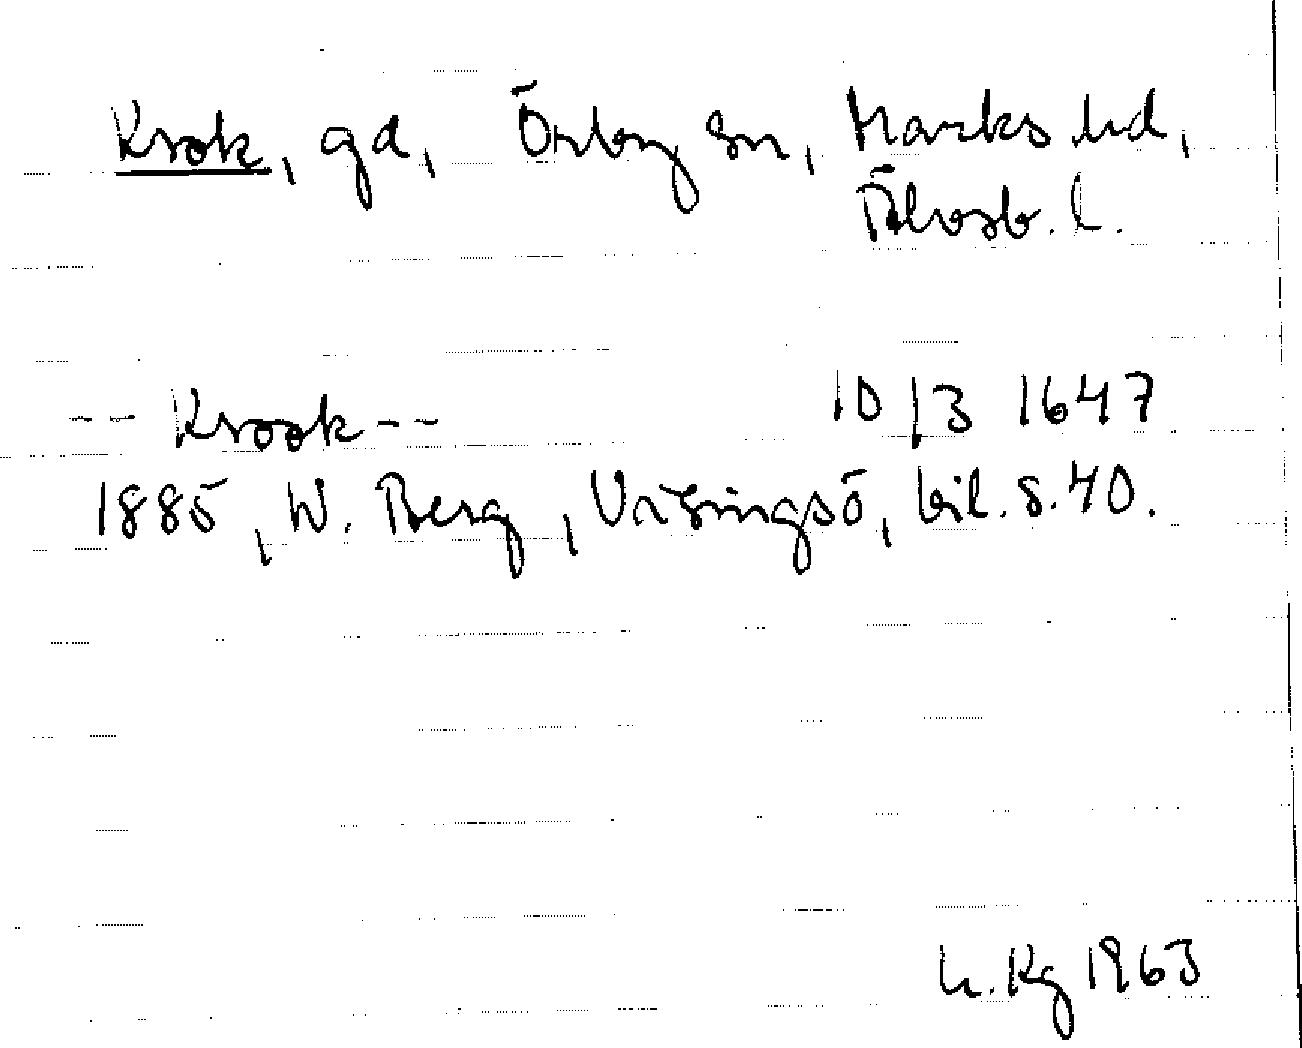 Krok, gd, Örby sn, Marks hd,
Älvsb. l.
-- Krook -- 10/3 1647
1885, W. Berg, Visingsö, bil. s. 40.
L. Kg 1963